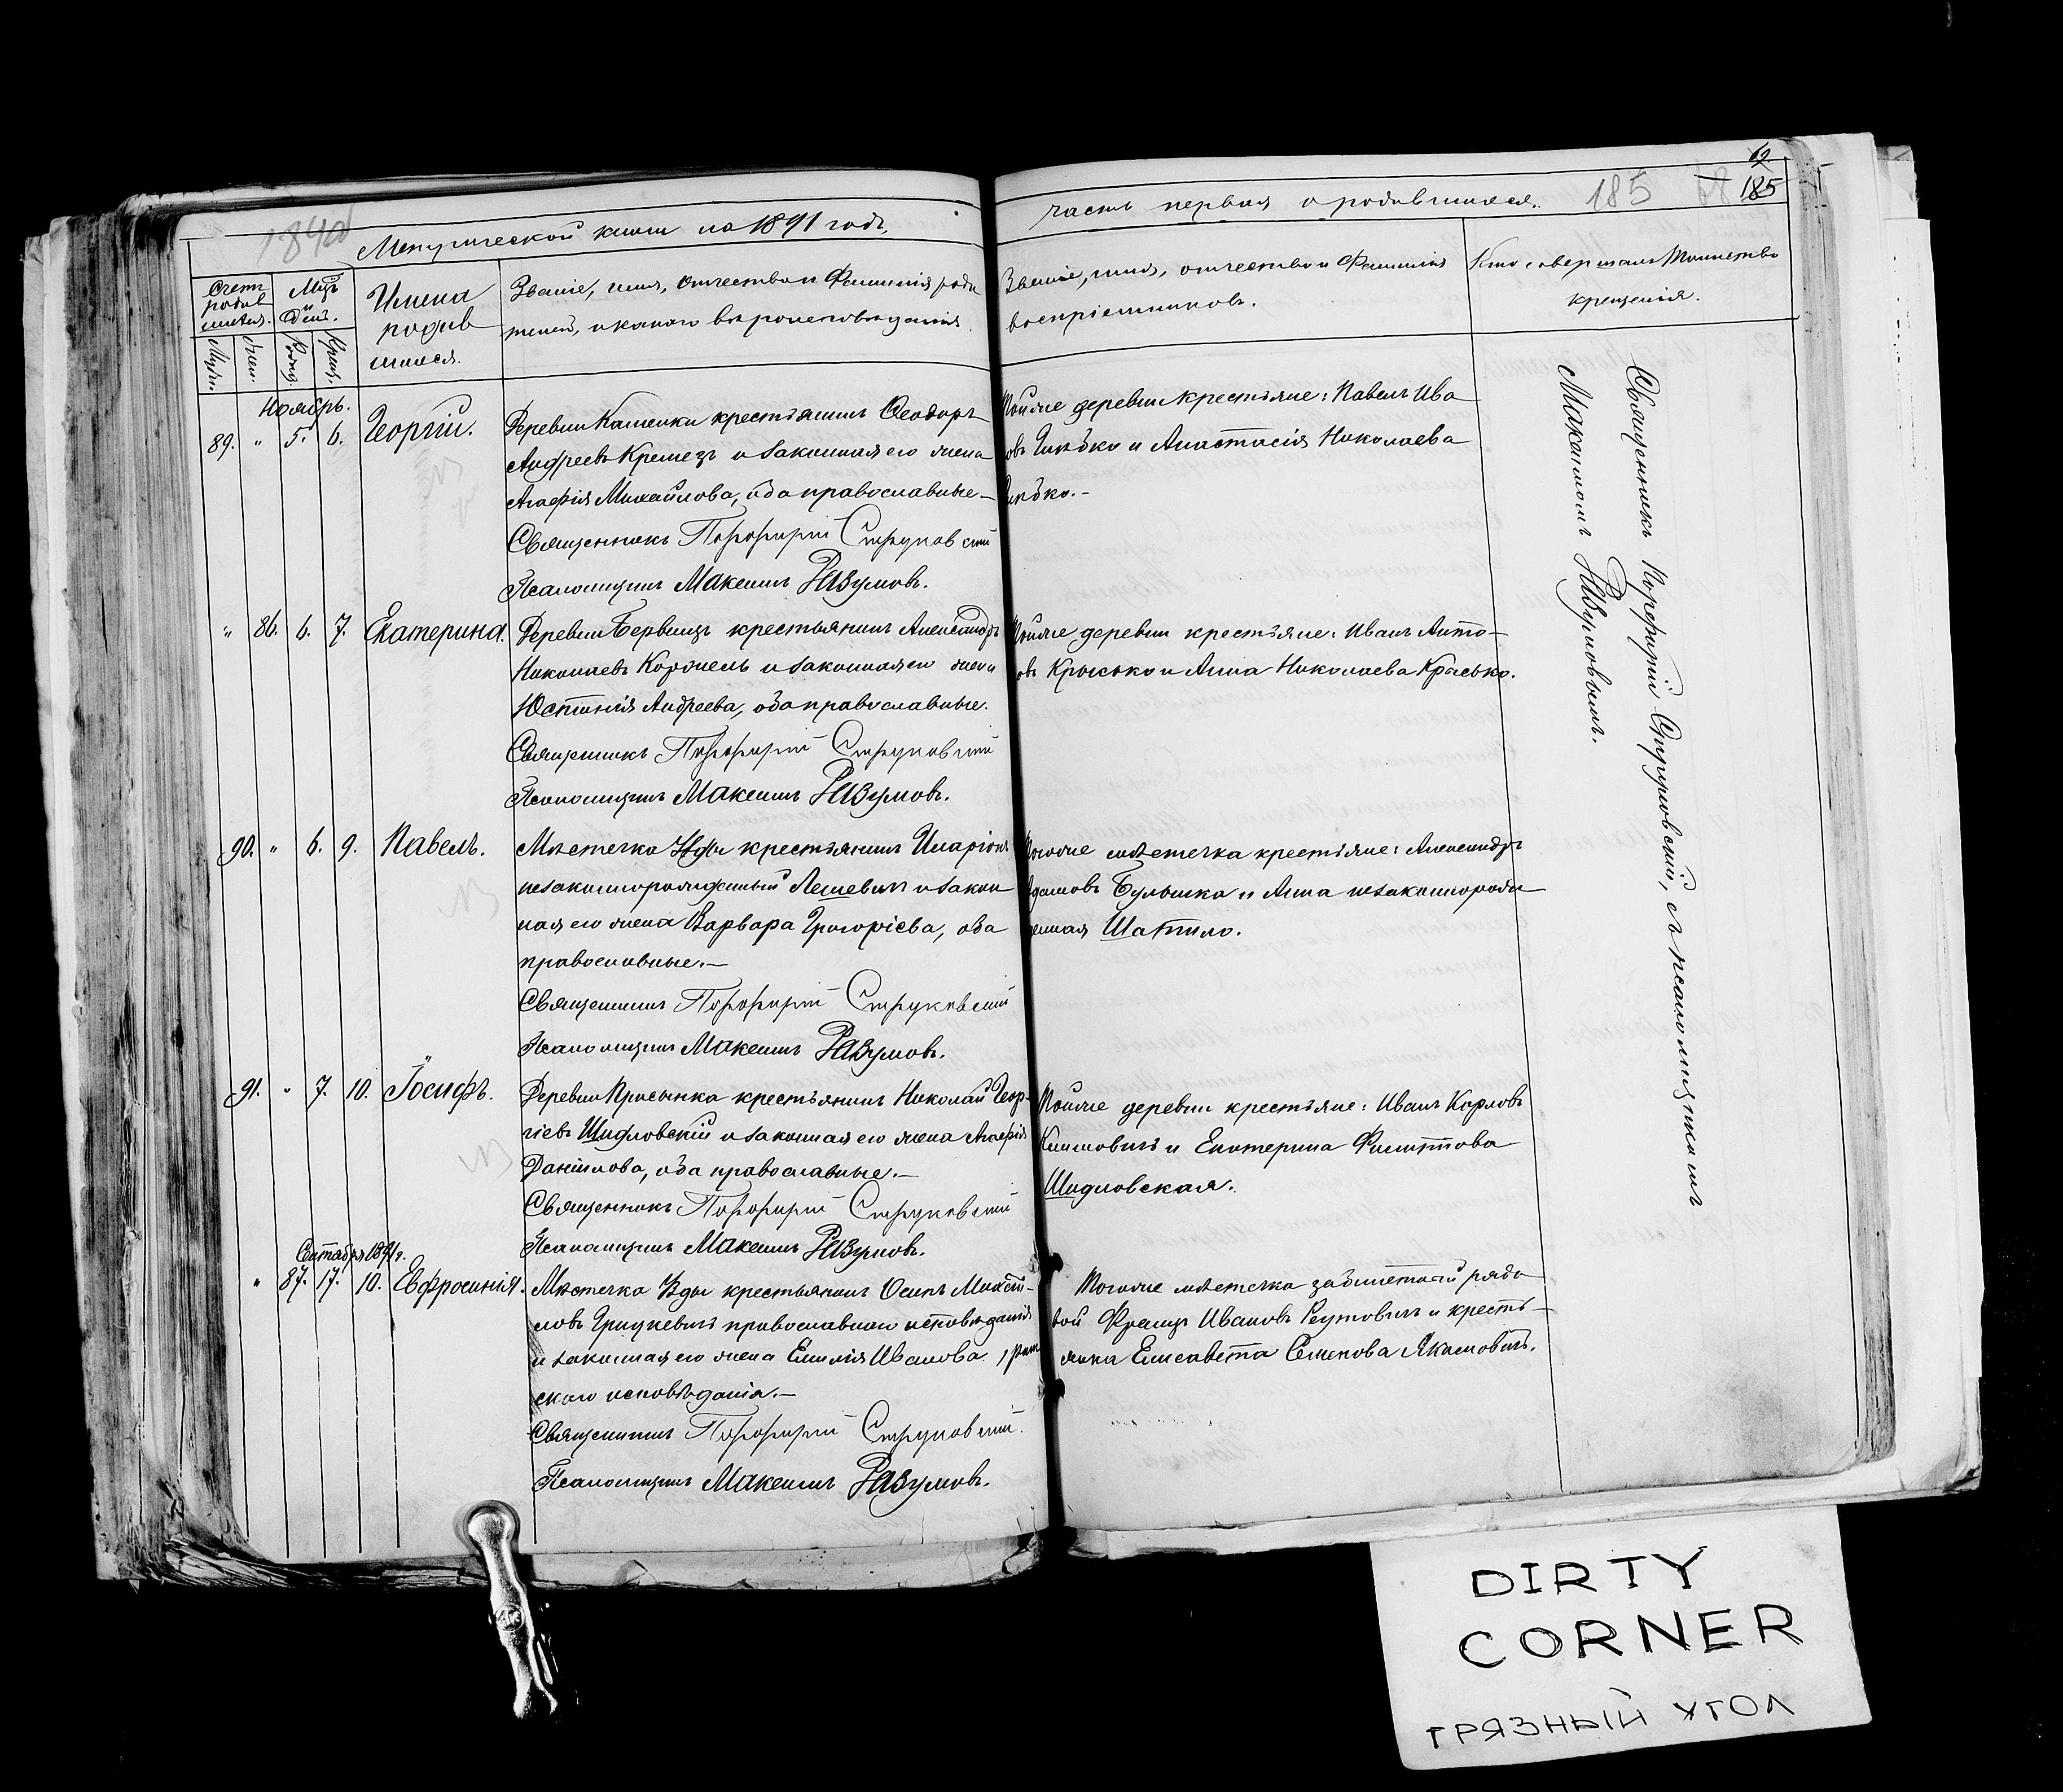 185
Метрической книги на 1891 годъ,
часть первая о родившихся.
185
Счетъ
родив
шихся.
Мѣсъ
День.
Имена
родив
шихся.
Званіе, имя, отчество и Фамилія роди
телей, и какого вѣроисповѣданія
Званіе, имя, отчество и Фамилія
воспріемниковъ.
Кто совершалъ Таинство
крещенія.
Мужс.
Женс.
Рожд.
Крещ.
Ноябрь.
89. " 5. 6. Георгій.
Деревни Каменки крестьянинъ Ѳеодоръ
Андреевъ Кремезъ и законная его жена
Агафія Михайлова, оба православные.—
Священникъ Порфирій Струковскій
Псаломщикъ Максимъ Разумовъ.
Тойже деревни крестьяне: Павелъ Ива
овъ и Анастасія Николаева
" 86. 6. 7. Екатерина.
Деревни крестьянинъ Александръ
Николаевъ и законная его жена
Юстинія Андреева, оба православные.
Священникъ Порфирій Струковскій
Псаломщикъ Максимъ Разумовъ.
Тойже деревни крестьяне: Иванъ Анто—
овъ Крысько и Анна Николаева Крысько.
90. " 6. 9. Павелъ.
Мѣстечка Узды крестьянинъ Иларіонъ
незаконнорожденный Лешевичъ и закон
ная его жена Варвара Григоріева, оба
православные.—
Священникъ Порфирій Струковскій
Псаломщикъ Максимъ Разумовъ.
Тогоже мѣстечка крестьяне: Александръ
Адамовъ Булышка и Анна незаконнорожд
енная Шатило.
91. " 7. 10. Іосифъ.
Деревни Присынка крестьянинъ Николай Геор-
гіевъ Шидловскій и законная его жена Агафія
Даніилова, оба православные.—
Священникъ Порфирій Струковскій
Псаломщикъ Максимъ Разумовъ.
Тойже деревни крестьяне: Иванъ Карловъ
Климовичъ и Екатерина Филиппова
Шидловская.
Сентября 1891 г.
" 87. 17. 10. Евфросинія.
Мѣстечка Узды крестьянинъ Осипъ Михай-
ловъ Грицкевичъ православнаго исповѣданія
и законная его жена Емилія Иванова, рим
скаго исповѣданія.—
Священникъ Порфирій Струковскій.
Псаломщикъ Максимъ Разумовъ.
Тогоже мѣстечка забилетный рядо
вой Францъ Ивановъ Реутовичъ и кресть—
янка Елисавета Семенова Якимовичъ.
Священникъ Порфирій Струковскій, съ псаломщикомъ
Максимомъ Разумовымъ.
DIRTY
CORNER
ГРЯЗНЫЙ УГОЛ